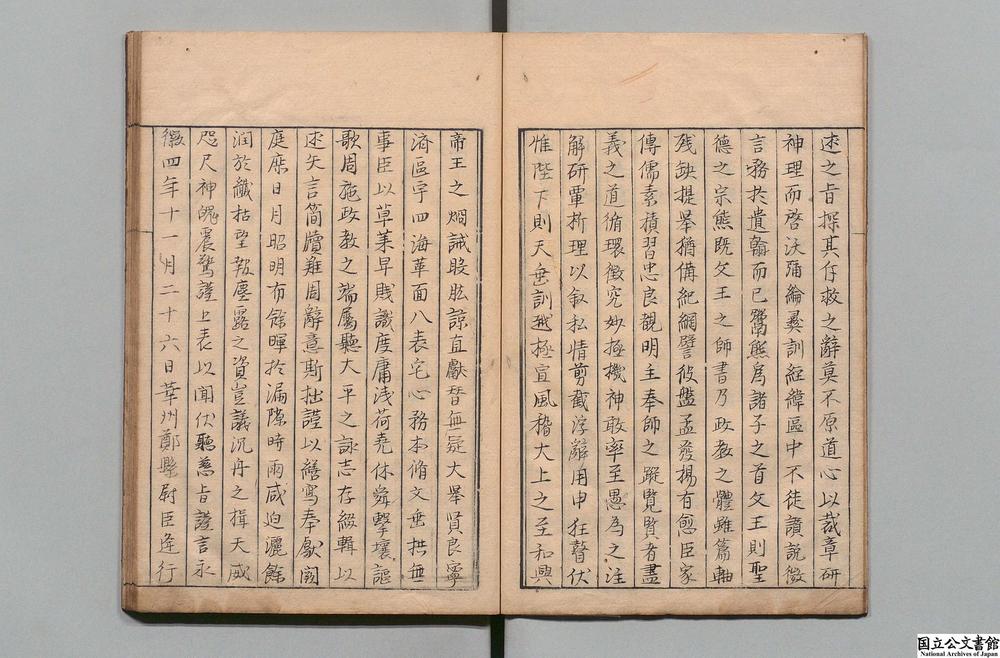 述之旨探其仔救之辭莫不原道心以裁章研
神理而啓沃彌綸彝訓經緯區中不徒讃説微
言務於遺翰而已鬻熊爲諸子之首文王則聖
德之宗熊既文王之師書乃政教之體雖篇軸
残缺提舉猶備紀綱譬彼盤盂發揚有愈臣家
傳儒素積習忠良覩明主奉師之蹤覧賢者盡
義之道循環徴究妙極機神敢率至愚為之注
解研覃析理以叙私情剪截浮辭用申狂瞽伏
惟陛下則天垂訓越極宣風稽大上之至和興
帝王之烱誡股肱諒直獻替無疑大舉賢良寧
済區宇四海革面八表宅心務本脩文垂拱無
事臣以草莱卑賎識度庸浅荷堯休舜撃壤謳
歌周施政教之端屬聽大平之詠志存綴輯以
述矢言簡牘難周辭意斯拙謹以繕寫奉獻闕
庭庶日月昭明布餘暉於漏隙時雨咸迫灑餘
潤於纎枯望報塵露之資豈議沉舟之揖天威
咫尺神魄震驚謹上表以聞伏聽慈旨謹言永
徽四年十一月二十六日華州鄭縣尉臣逄行
国立公文書館
National Archives of Japan